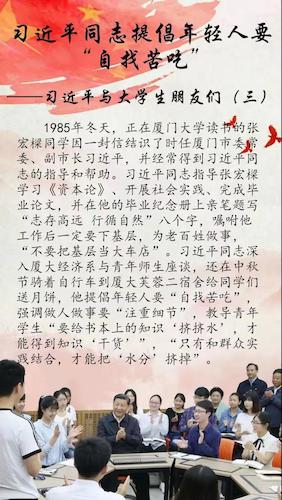 习近平同志提倡年轻人要
“自找苦吃”
——习近平与大学生朋友们（三）
1985年冬天，正在厦门大学读书的张
宏樑同学因一封信结识了时任厦门市委常
委、副市长习近平，并经常得到习近平同
志的指导和帮助。习近平同志指导张宏樑
学习《资本论》、开展社会实践、完成毕
业论文，并在他的毕业纪念册上亲笔题写
“志存高远 行循自然”八个字，嘱咐他
工作后一定要下基层，为老百姓做事，
“不要把基层当大车店”。习近平同志深
入厦大经济系与青年师生座谈，还在中秋
节骑着自行车到厦大芙蓉二宿舍给同学们
送月饼，他提倡年轻人要“自找苦吃”，
强调做人做事要“注重细节”，教导青年
学生“要给书本上的知识‘挤挤水’，才
能得到知识‘干货’”，“只有和群众实
践结合，才能把‘水分’挤掉”。